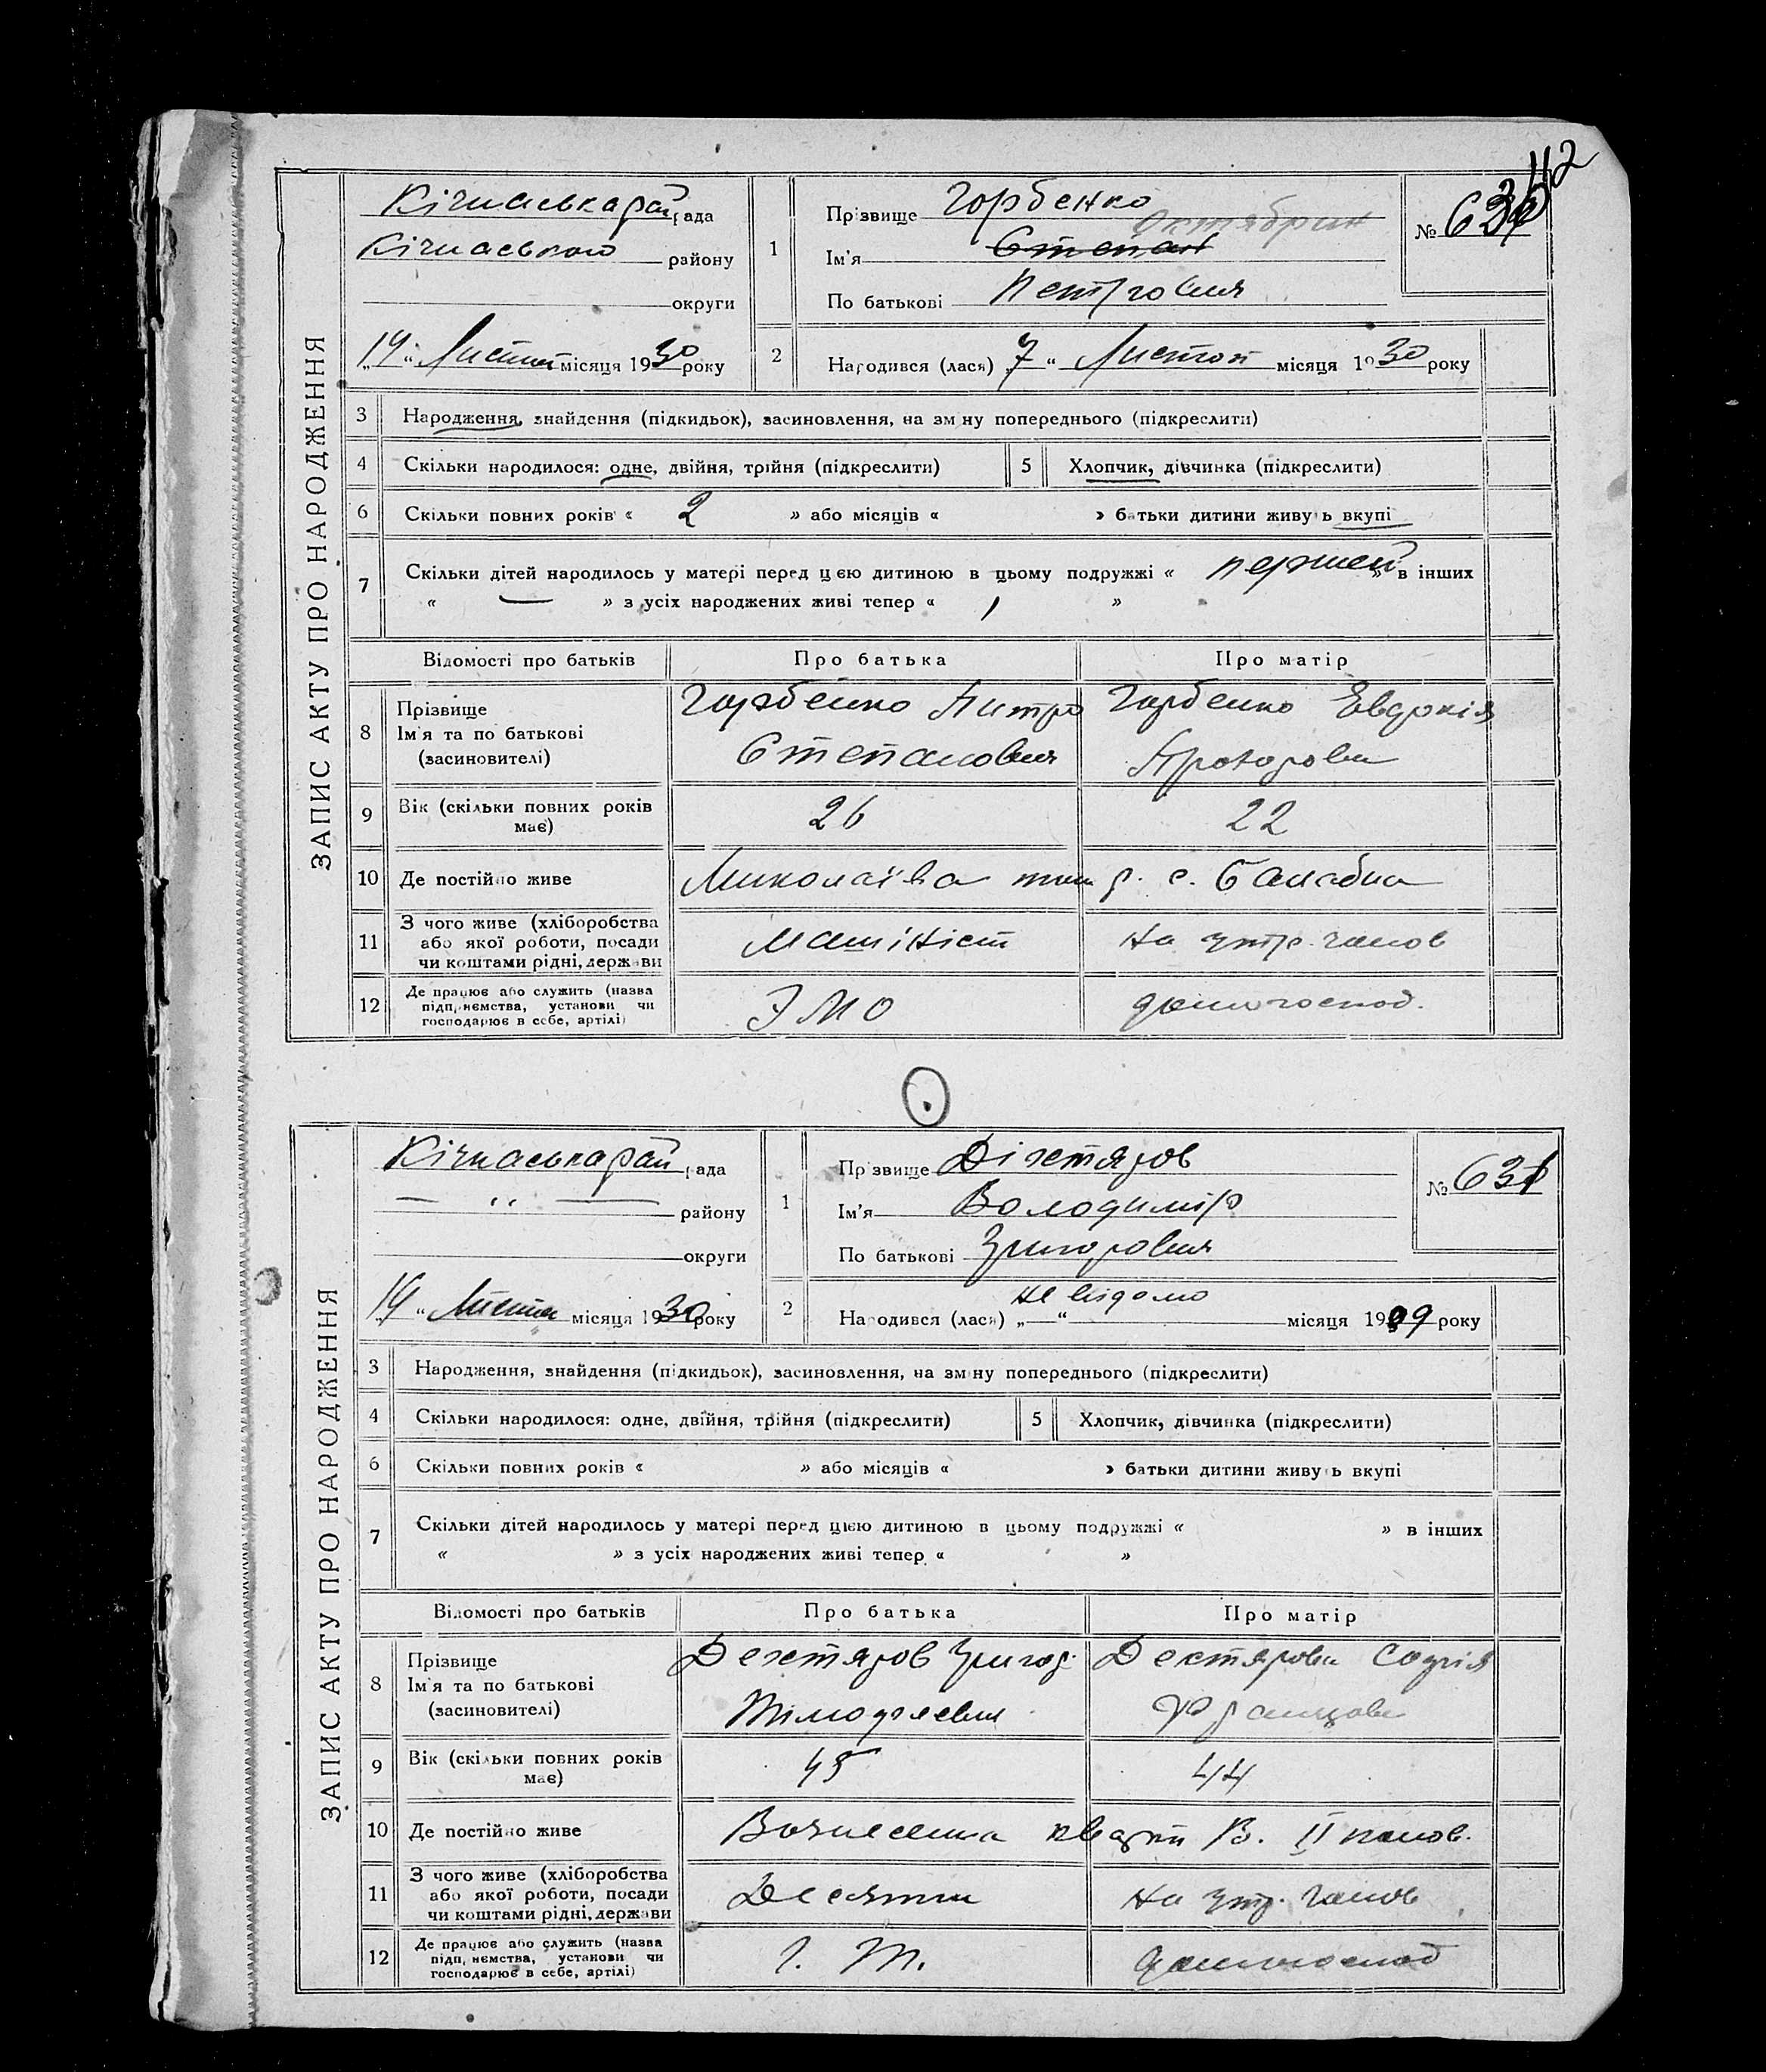 42
ЗАПИС АКТУ ПРО НАРОДЖЕННЯ
Кічкаськарай рада
Кічкаського району
округи
„14“ Листоп місяця 1930 року
1
Прізвище Горбенко
Октябрин
Ім'я Степан
По батькові Петрович
№ 630
2 Народився (лася) „7“ Листоп місяця 1930 року
3 Народження, знайдення (підкидьок), засиновлення, на зміну попереднього (підкреслити)
4 Скільки народилося: одне, двійня, трійня (підкреслити) 5 Хлопчик, дівчинка (підкреслити)
6 Скільки повних років « 2 » або місяців « » батьки дитини живуть вкупі
7 Скільки дітей народилось у матері перед цією дитиною в цьому подружжі « першей » в інших
« — » з усіх народжених живі тепер « 1 »
Відомості про батьків Про батька Про матір
8 Прізвище
Ім'я та по батькові
(засиновителі)
Горбенко Питро
Степанович
Горбенко Евдокія
Прохоровн
9 Вік (скільки повних років
має)
26 22
10 Де постійно живе Миколаївка с. Балабка
11 З чого живе (хліборобства
або якої роботи, посади
чи коштами рідні, держави
Машініст На утр. чолов
12 Де працює або служить (назва
підприємства, установи чи
господарює в себе, артілі)
ЭМО домогоспод.
ЗАПИС АКТУ ПРО НАРОДЖЕННЯ
Кічкаськарай рада
— „ — району
округи
„14“ Листоп місяця 1930 року
1
Прізвище Діхтяров
Ім'я Володимір
По батькові Григорович
№ 631
не відомо
2 Народився (лася) „—“ місяця 1909 року
3 Народження, знайдення (підкидьок), засиновлення, на зміну попереднього (підкреслити)
4 Скільки народилося: одне, двійня, трійня (підкреслити) 5 Хлопчик, дівчинка (підкреслити)
6 Скільки повних років « » або місяців « » батьки дитини живуть вкупі
7 Скільки дітей народилось у матері перед цією дитиною в цьому подружжі « » в інших
« » з усіх народжених живі тепер « »
Відомості про батьків Про батька Про матір
8 Прізвище
Ім'я та по батькові
(засиновителі)
Дехтяров Григор.
Тімофеевич
Дехтярова Софія
Францовн
9 Вік (скільки повних років
має)
45 44
10 Де постійно живе Вознесенка В. II
11 З чого живе (хліборобства
або якої роботи, посади
чи коштами рідні, держави
Десятник На утр. чолов
12 Де працює або служить (назва
підприємства, установи чи
господарює в себе, артілі)
Г. Т. домогоспод